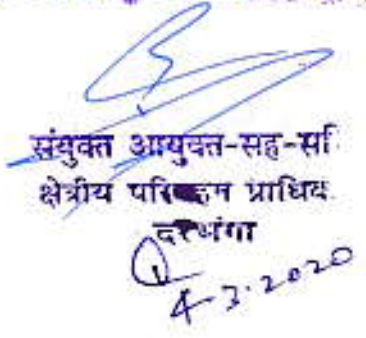 संयुक्त आयुक्त-सह-सचि
क्षेत्रीय परिवहन प्राधिक
दरभंगा
4-3-2020